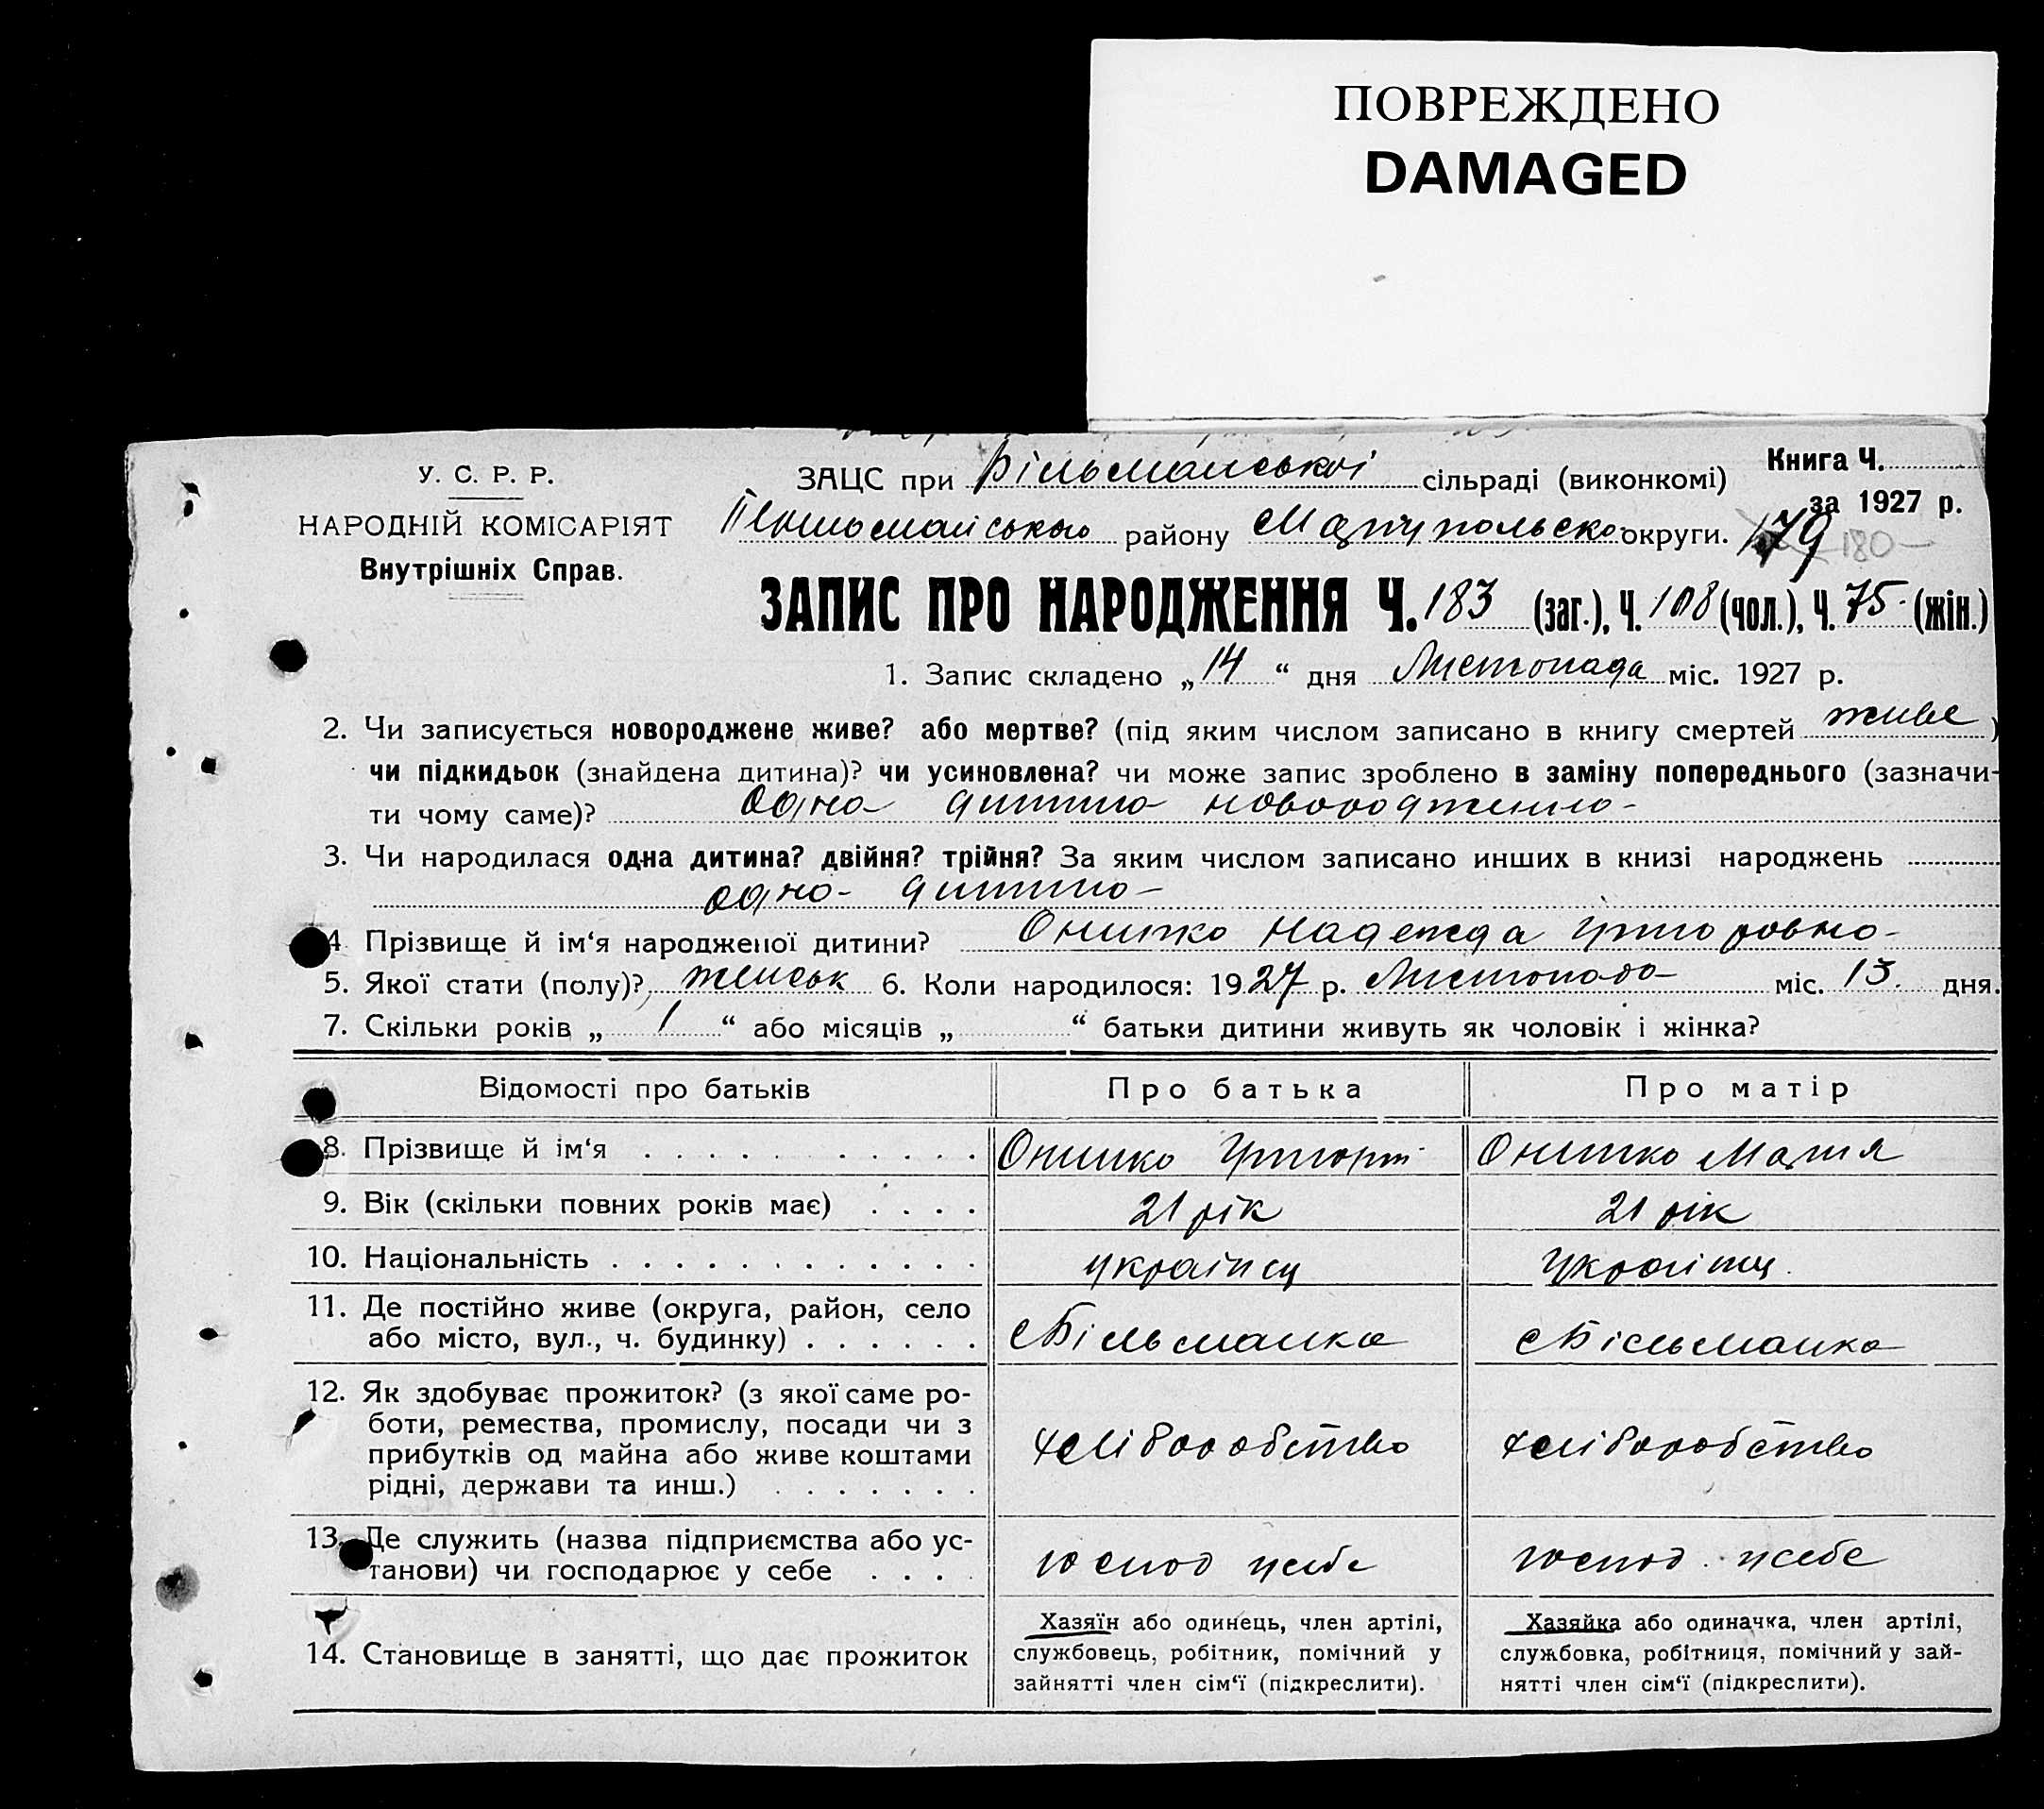 ПОВРЕЖДЕНО
DAMAGED
У. С. Р. Р.
НАРОДНІЙ КОМІСАРІЯТ
Внутрішніх Справ.
ЗАЦС при Більманської сільраді (виконкомі)
Книга Ч.
за 1927 р.
району Маріупольско округи. 179 180
ЗАПИС ПРО НАРОДЖЕННЯ Ч. 183 (заг.), Ч. 108 (чол.), Ч. 75 (жін.)
1. Запис складено „14“ дня Листопада міс. 1927 р.
2. Чи записується новороджене живе? або мертве? (під яким числом записано в книгу смертей живе)
чи підкидьок (знайдена дитина)? чи усиновлена? чи може запис зроблено в заміну попереднього (зазначи-
ти чому саме)? одна дитина новородженна
3. Чи народилася одна дитина? двійня? трійня? За яким числом записано инших в книзі народжень
одна дитина
4 Прізвище й ім‘я народженої дитини? Онишко Надежда Григоровна
5. Якої стати (полу)? женськ 6. Коли народилося: 1927 р. Листопада міс. 13 дня.
7. Скільки років „1“ або місяців „ “ батьки дитини живуть як чоловік і жінка?
Відомості про батьків Про батька Про матір
8. Прізвище й ім‘я Онишко Григорій Онишко Мария
9. Вік (скільки повних років має) 21 рік 21 рік
10. Національність українец українец
11. Де постійно живе (округа, район, село
або місто, вул., ч. будинку) с Більманка с Більманка
12. Як здобуває прожиток? (з якої саме ро-
боти, ремества, промислу, посади чи з
прибутків од майна або живе коштами
рідні, держави та инш.) хліборобство хліборобство
13. Де служить (назва підприємства або ус-
танови) чи господарює у себе господ у себе господ. у себе
14. Становище в занятті, що дає прожиток
Хазяїн або одинець, член артілі,
службовець, робітник, помічний у
зайнятті член сім‘ї (підкреслити).
Хазяйка або одиначка, член артілі,
службовка, робітниця, помічний у зай-
нятті член сім‘ї (підкреслити).